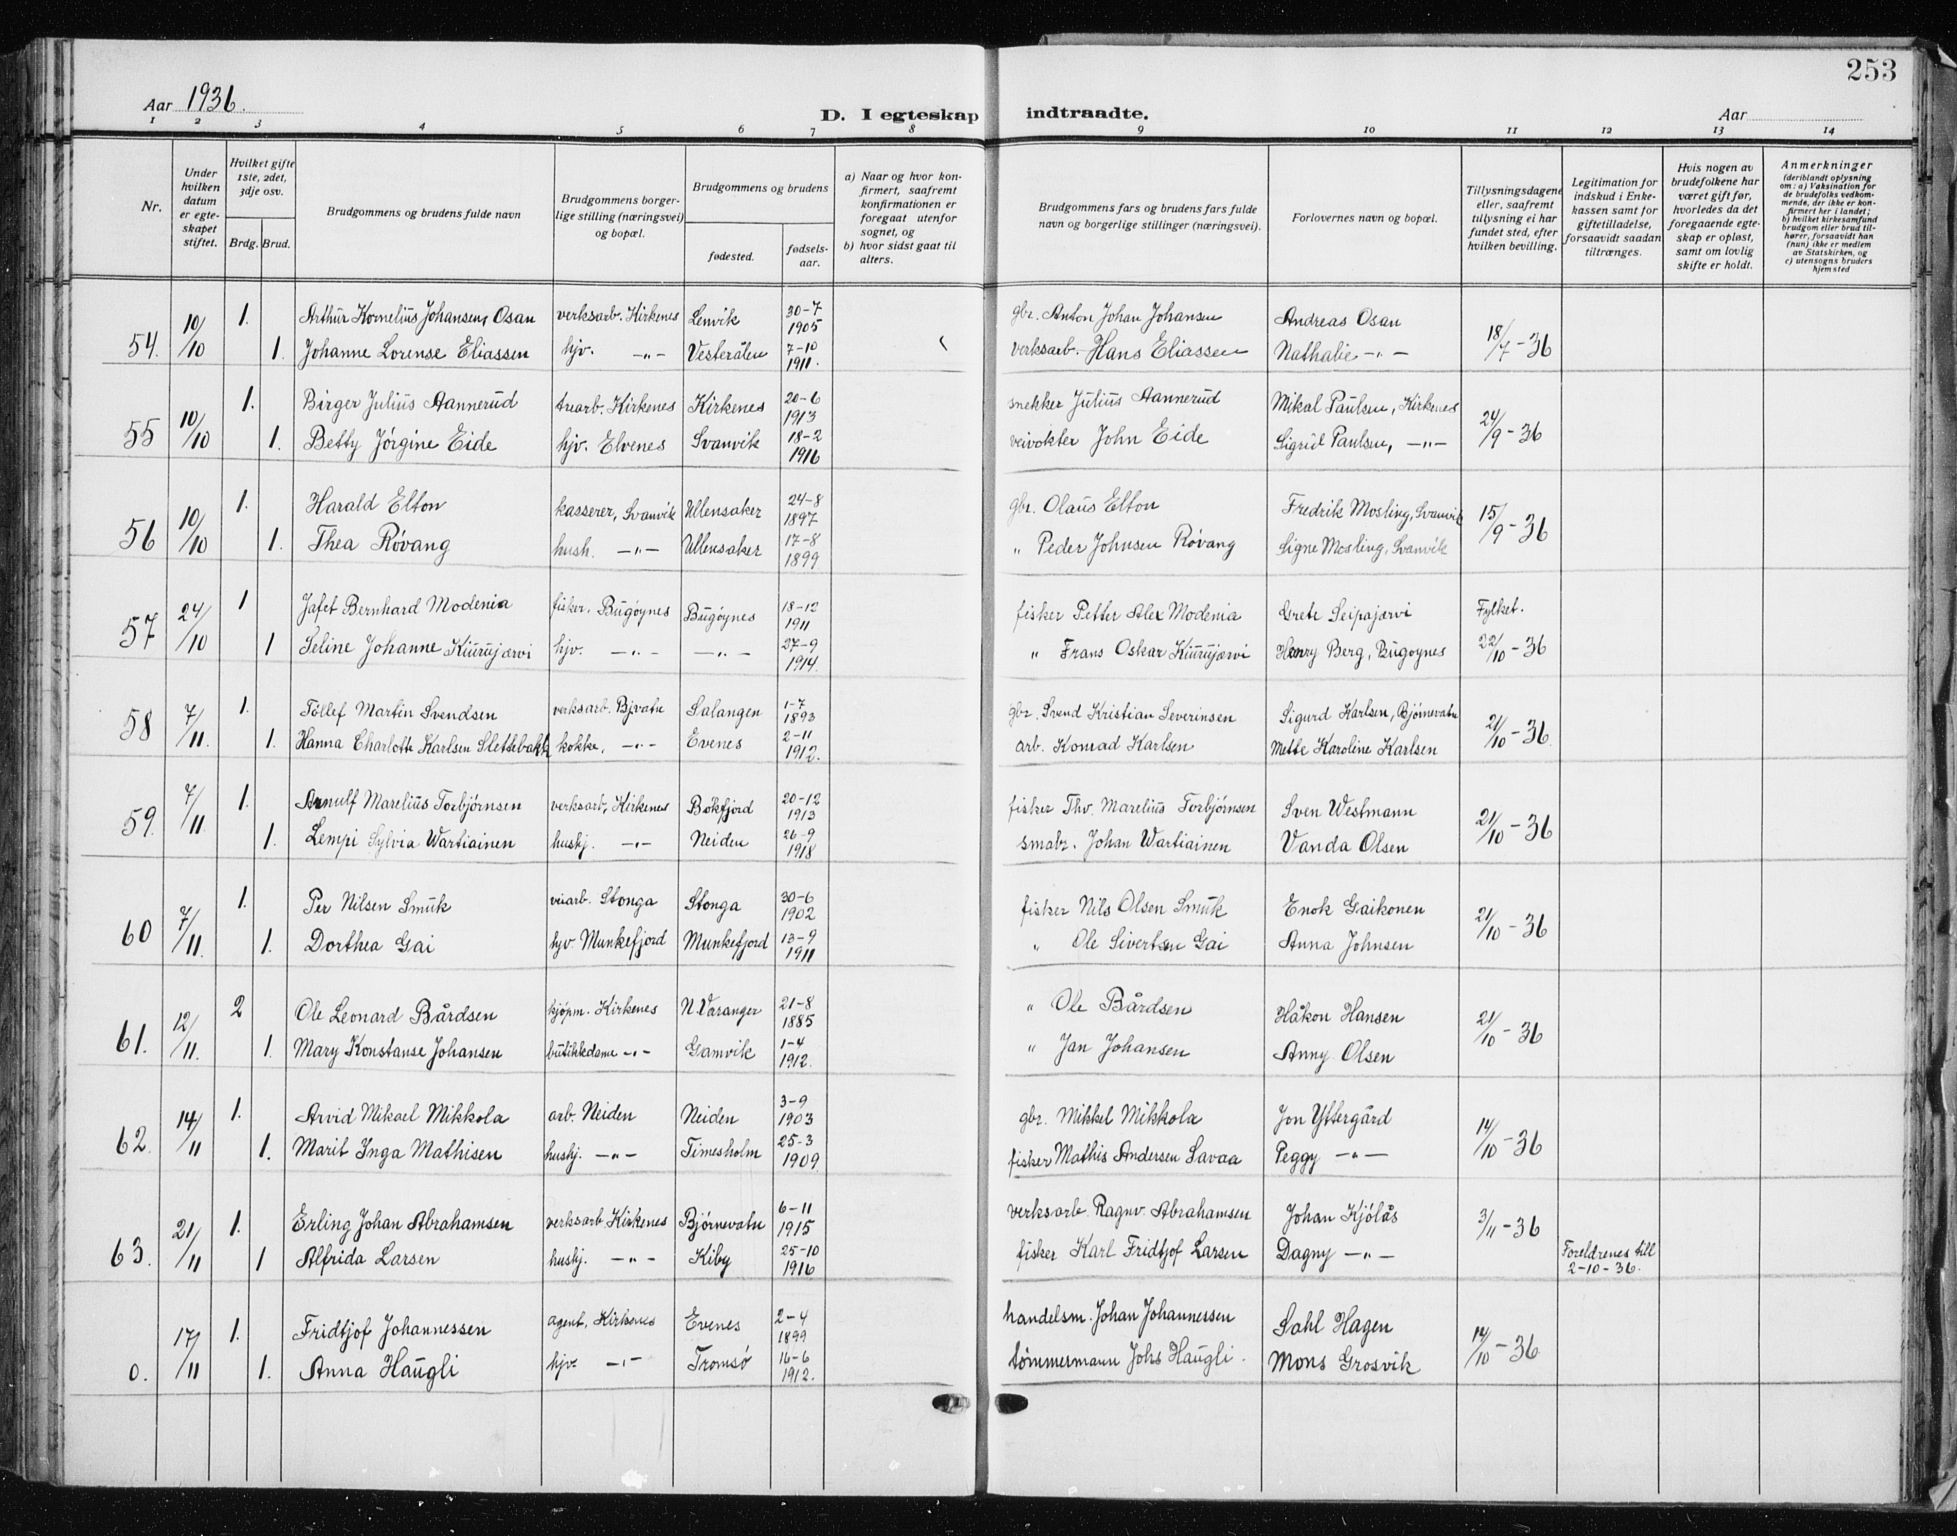 253
Aar 1936. D. I egteskap indtraadte. Aar
1 2 3 4 5 6 7 8 9 10 11 12 13 14
Nr.
Under hvilken datum er egteskapet stiftet.
Hvilket gifte 1ste, 2det, 3dje osv.
Brdg. Brud.
Brudgommens og brudens fulde navn
Brudgommens borgerlige stilling (næringsvei) og bopæl.
Brudgommens og brudens
fødested.
fødselsaar.
a) Naar og hvor konfirmert, saafremt konfirmationen er foregaat utenfor sognet, og
b) hvor sidst gaat til alters.
Brudgommens fars og brudens fars fulde navn og borgerlige stillinger (næringsvei).
Forlovernes navn og bopæl.
Tillysningsdagene eller, saafremt tillysning ei har fundet sted, efter hvilken bevilling.
Legitimation for indskud i Enkekassen samt for giftetilladelse, forsaavidt saadan tiltrænges.
Hvis nogen av brudefolkene har været gift før, hvorledes da det foregaaende egteskap er opløst, samt om lovlig skifte er holdt.
Anmerkninger (deriblandt oplysning om: a) Vaksination for de brudefolks vedkommende, der ikke er konfirmert her i landet; b) hvilket kirkesamfund brudgom eller brud tilhører, forsaavidt han (hun) ikke er medlem av Statskirken, og c) utensogns bruders hjemsted
54. 10/10 1. Arthur Kornelius Johansen, Osan verksarb. Kirkenes Lenvik 30-7 1905 gbr. Anton Johan Johansen Andreas Osan 18/7-36
1. Johanne Lorense Eliassen hjv. -"- Vesterålen 7-10 1911. verksarb. Hans Eliassen Nathalie -"-
55 10/10 1. Birger Julius Aannerud truarb. Kirkenes Kirkenes 20-6 1913 snekker Julius Aannerud Mikal Paulsen, Kirkenes 24/9-36
1. Betty Jörgine Eide hjv. Elvenes Svanvik 18-2 1916 veivokter John Eide Sigrid Paulsen, -"-
56 10/10 1. Harald Elton kasserer, Svanvik Ullensaker 24-8 1897 gbr. Olaus Elton Fredrik Mosling, Svanvik 15/9-36
1. Thea Róvang hush. -"- Ullensaker 17-8 1899 " Peder Johnsen Róvang Signe Mosling, Svanvik
57 24/10 1 Jafet Bernhard Modenia fisker. Bugøynes Bugøynes 18-12 1911 fisker Petter Alex Modenia Grete Seipajærvi Fylket.
1 Seline Johanne Kiurujærvi hjv. -"- -"- 27-9 1914. " Frans Oskar Kiurujærvi Henry Berg, Bugøynes 22/10-36
58 7/11. 1. Tollef Martin Svendsen verksarb. Bjvatn Salangen 1-7 1893 gbr. Svend Kristian Severinsen Sigurd Karlsen, Bjørnevatn 21/10-36
1. Hanna Charlotte Karlsen Slettebakk kokke, -"- Evenes 2-11 1912. arb. Konrad Karlsen Mette Karoline Karlsen
59. 7/11 1. Arnulf Marelius Torbjørnsen verksarb. Kirkenes Bøkfjord 20-12 1913 fisker Thv. Marelius Torbjørnsen Sven Westmann 21/10-36
1. Lempi Sylvia Wartiainen hushj. -"- Neiden 26-9 1918 smabr. Johan Wartiainen Vanda Olsen
60 7/11. 1. Per Nilsen Smuk veiarb. Stonga Stonga 30-6 1902 fisker Nils Olsen Smuk Enok Gaikonen 21/10-36
1. Dorthea Gai hjv. Munkefjord Munkefjord 13-9 1911 " Ole Sivertsen Gai Anna Johnsen
61. 12/11. 2 Ole Leonard Bårdsen kjøpm. Kirkenes N. Varanger 21-8 1885 " Ole Bårdsen Håkon Hansen 21/10-36
1. Mary Konstanse Johansen butikkdame -"- Gamvik 1-4 1912. " Jan Johansen Anny Olsen
62. 14/11 1. Arvid Mikael Mikkola arb. Neiden Neiden 3-9 1903 gbr. Mikkel Mikkola Jon Yttergård 14/10-36
1. Marit Inga Mathisen hushj. -"- Timesholm 25-3 1909. fisker Mathis Andersen Savaa Peggy -"-
63. 21/11 1. Erling Johan Abrahamsen verksarb. Kirkenes Bjørnevatn 6-11 1915 verksarb. Ragnv. Abrahamsen Johan Kjólås 3/11-36
1 Alfrida Larsen hushj. -"- Kiby 25-10 1916 fisker Karl Fridtjof Larsen Dagny -"- Foreldrenes till 2-10-36.
0. 17/11 1. Fridtjof Johannessen agent, Kirkenes Evenes 2-4 1899 handelsm. Johan Johannessen Sahl Hagen 14/10-36
1. Anna Haugli hjv. -"- Tromsø 16-6 1912. tømmermann Johs Haugli. Mons Grosvik